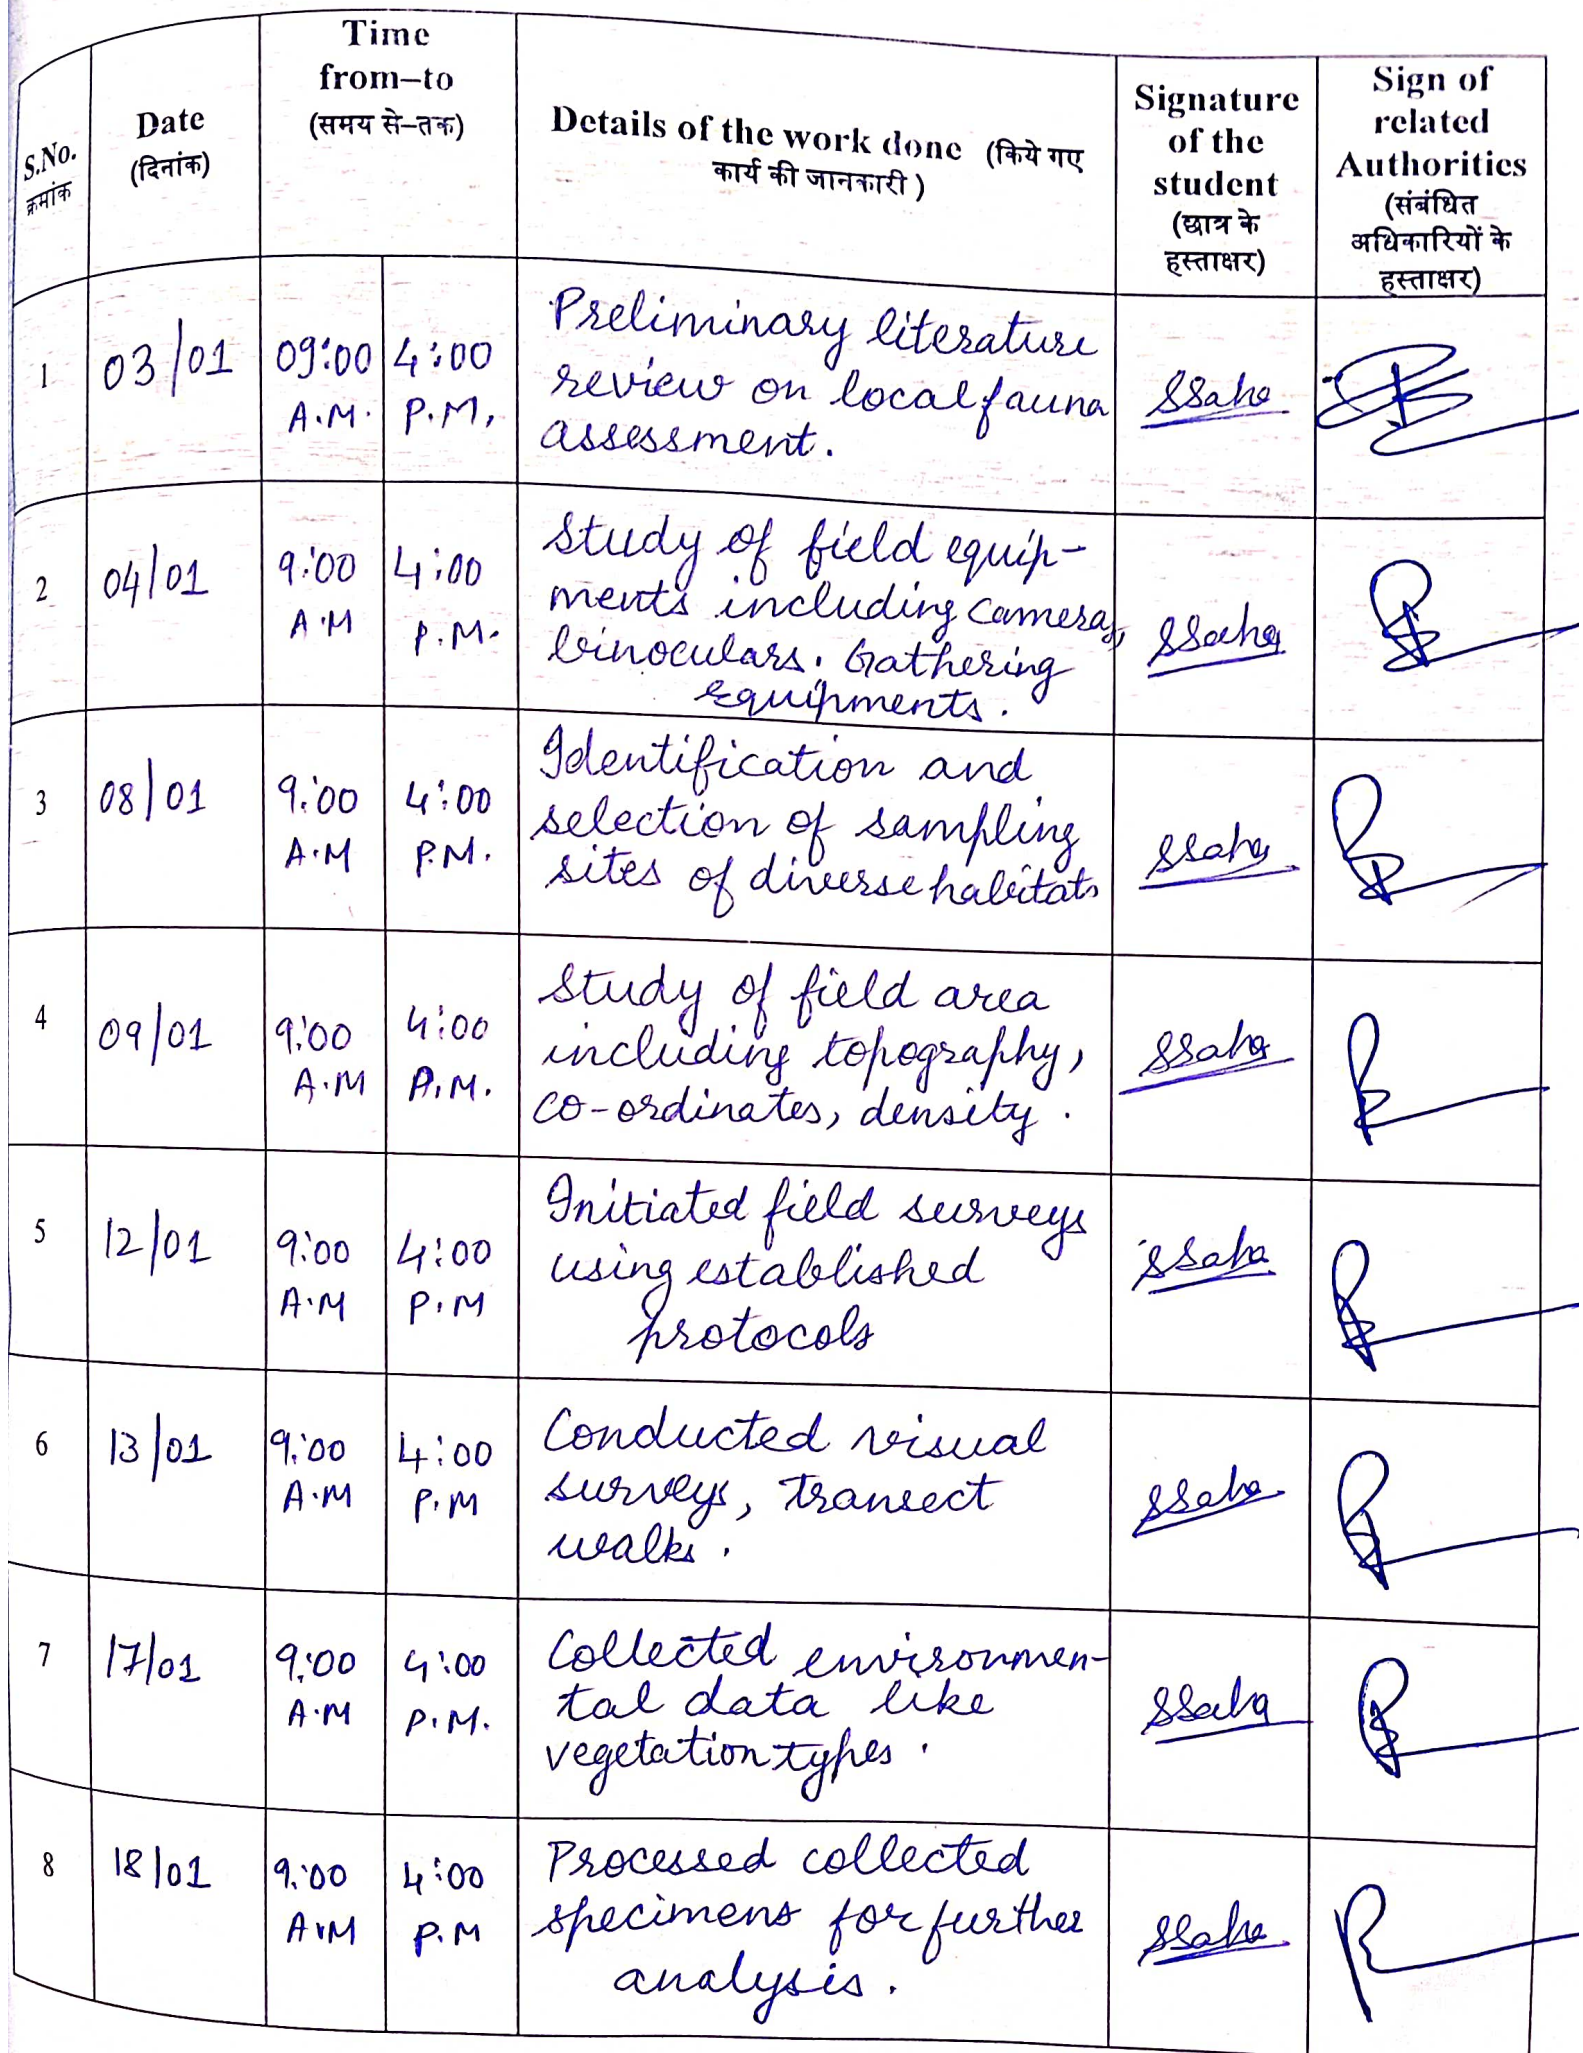 S.No.
क्रमांक
Date
(दिनांक)
Time
from–to
(समय से–तक)
Details of the work done (किये गए
कार्य की जानकारी)
Signature
of the
student
(छात्र के
हस्ताक्षर)
Sign of
related
Authorities
(संबंधित
अधिकारियों के
हस्ताक्षर)
1
03/01
09:00
A.M.
4:00
P.M.
Preliminary literature
review on local fauna
assessment.
SSaha
2
04/01
9:00
A.M
4:00
P.M.
Study of field equip-
ments including cameras,
binoculars. Gathering
equipments.
SSaha
3
08/01
9:00
A.M
4:00
P.M.
Identification and
selection of sampling
sites of diverse habitats
SSaha
4
09/01
9:00
A.M
4:00
P.M.
Study of field area
including topography,
co-ordinates, density.
SSaha
5
12/01
9:00
A.M
4:00
P.M
Initiated field surveys
using established
protocols
SSaha
6
13/01
9:00
A.M
4:00
P.M
Conducted visual
surveys, transect
walks.
SSaha
7
17/01
9:00
A.M
4:00
P.M.
Collected environmen-
tal data like
vegetation types.
SSaha
8
18/01
9:00
A.M
4:00
P.M
Processed collected
specimens for further
analysis.
SSaha